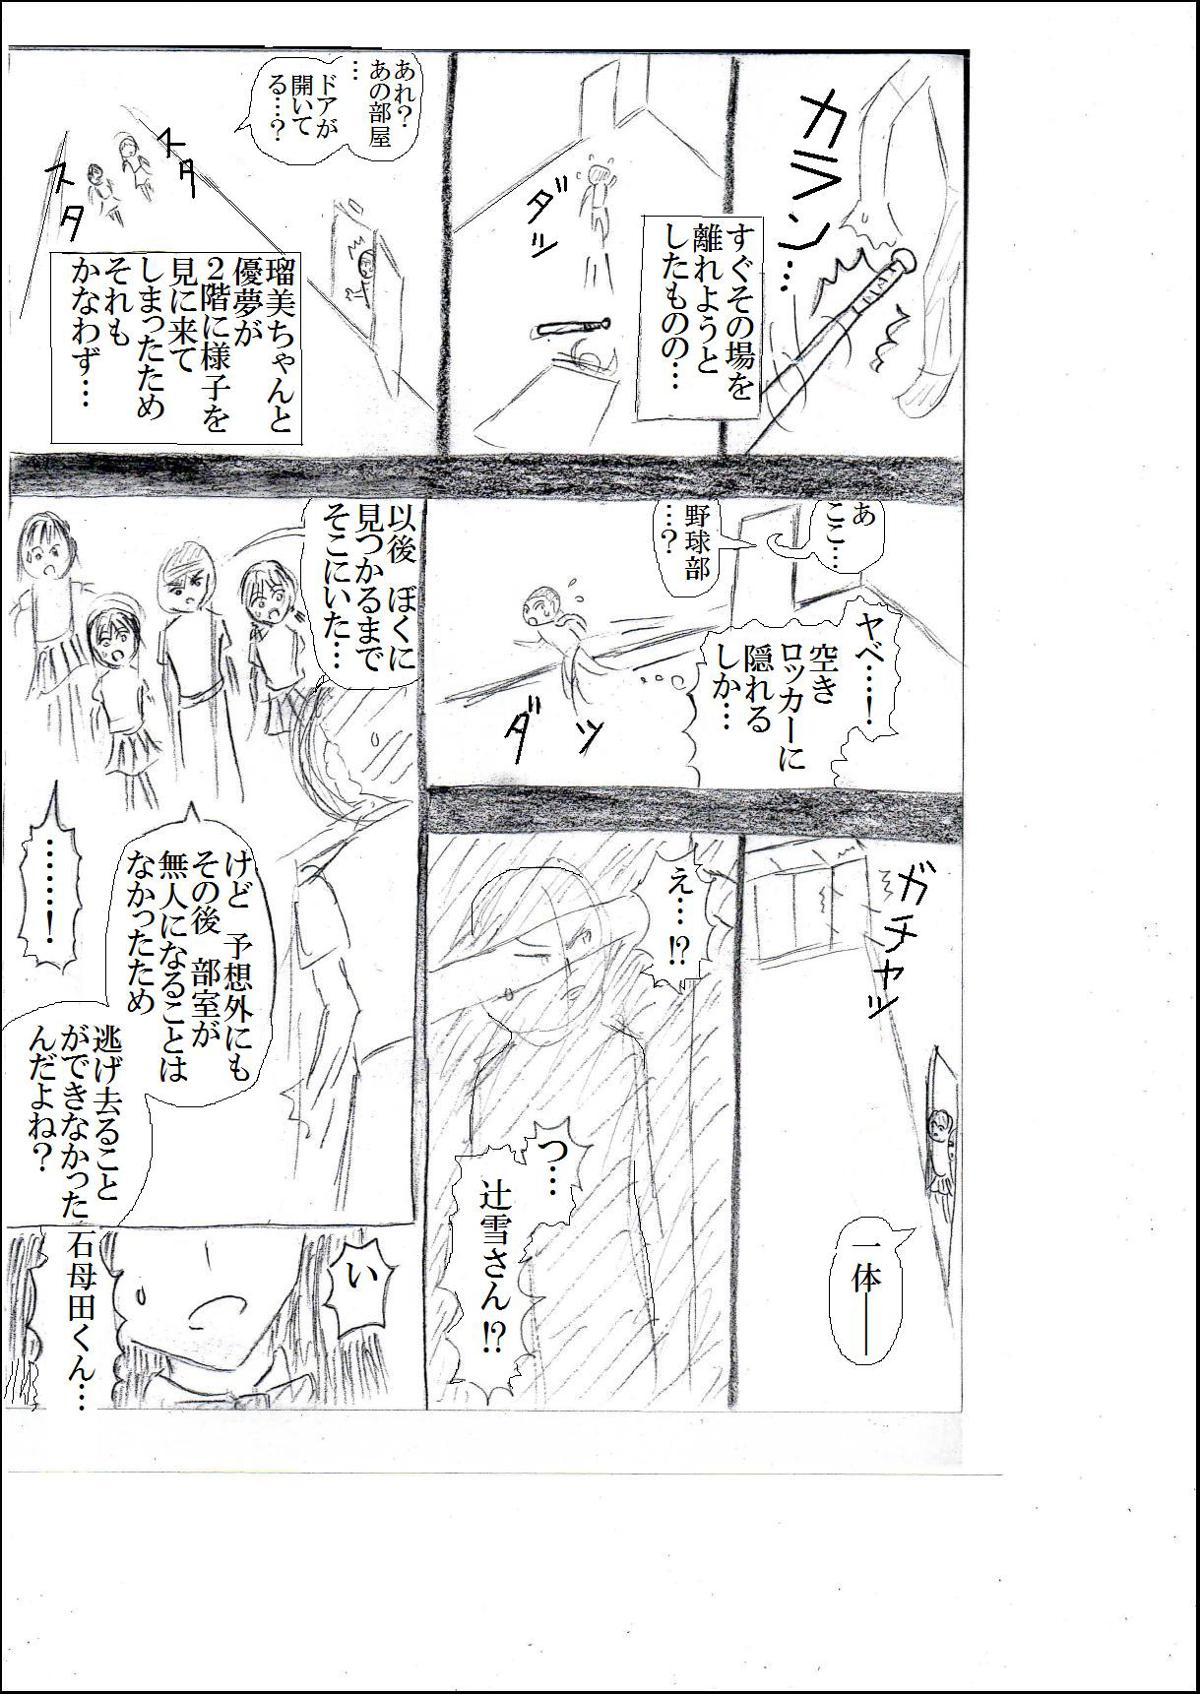 カラン…
すぐその場を
離れようと
したものの…
ダッ
あれ？
あの部屋
…
ドアが
開いて
る…？
スタ
スタ
瑠美ちゃんと
優夢が
２階に様子を
見に来て
しまったため
それも
かなわず…
あ
ここ…
野球部
…？
ヤベ…！
空き
ロッカーに
隠れる
しか…
ダッ
ガチャッ
一体――
え…⁉
つ…
辻雪さん⁉
以後　ぼくに
見つかるまで
そこにいた…
けど　予想外にも
その後　部室が
無人になることは
なかったため
………！
逃げ去ること
ができなかった
んだよね？
石母田くん…
い